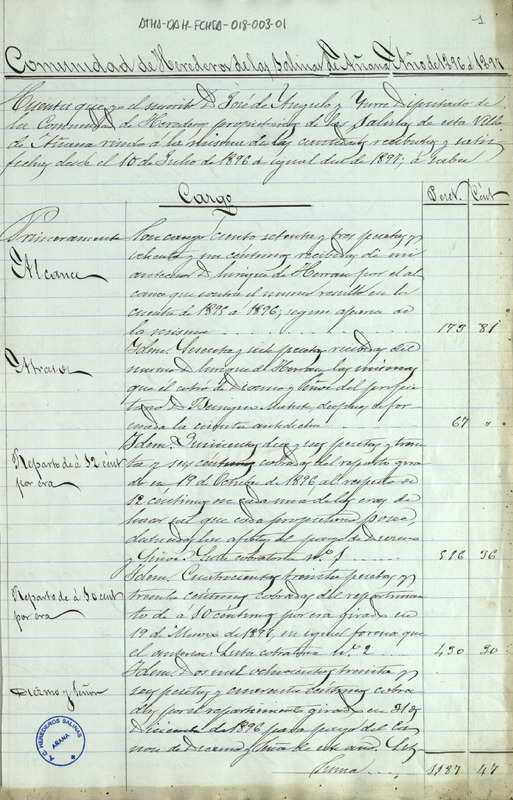 ATHA-DAH-FCHSA-018-003-01
1
Comunidad de Herederos de las Salinas de Añana Año de 1896 a 1897
Cuenta que yo el suscrito D. José de y Yurre Diputado de
la Comunidad de Herederos propietarios de las Salinas de esta Villa
de Añana rindo a la misma de las cantidades recibidas y
fechas desde el 10 de Julio de 1896 a igual dia de 1897; a saber
Cargo
Peset. Cént
Primeramente
Alcance
Son cargo ciento setenta y tres pesetas y
ochenta y un céntimos recibidas de mi
antecesor D. Enrique de Herran por el al
cance que contra el mismo resultó en la
cuenta de 1895 a 1896, segun aparece de
la misma
173 81
Atrasos
Idem. Sesenta y siete pesetas recibidas del
mismo D. Enrique de Herran, las mismas
que él cobró de Diezmo y Señor del propie
tario D. después de for
mada la cuenta antedicha
67 "
Reparto de á 12 cént
por era
Idem. Quinientas diez y seis pesetas y trein
ta y seis céntimos cobradas del reparto gira
do en 19 de Octubre de 1896 al respecto de
12 céntimos en cada una de las eras de
hacer sal que cada propietario posee,
al pago de Diezmo
y Señor: Lista cobratoria nº 1
516 36
Reparto de á 10 cént
por era
Idem. Cuatrocientas treinta pesetas y
treinta céntimos cobradas del repartimien
to de á 10 céntimos por era girado en
19 de de 1897, en igual forma que
el anterior: Lista cobratoria Nº 2
430 30
Diezmo y Señor
Idem. Dos mil ochocientas treinta y
seis pesetas y céntimos cobra
das por el repartimiento girado en 31 de
Diciembre de 1896 para pago del Ca
non de Diezmo y Señor de este año. Lis
Suma
1187 47
A.C. HEREDEROS SALINAS
AÑANA